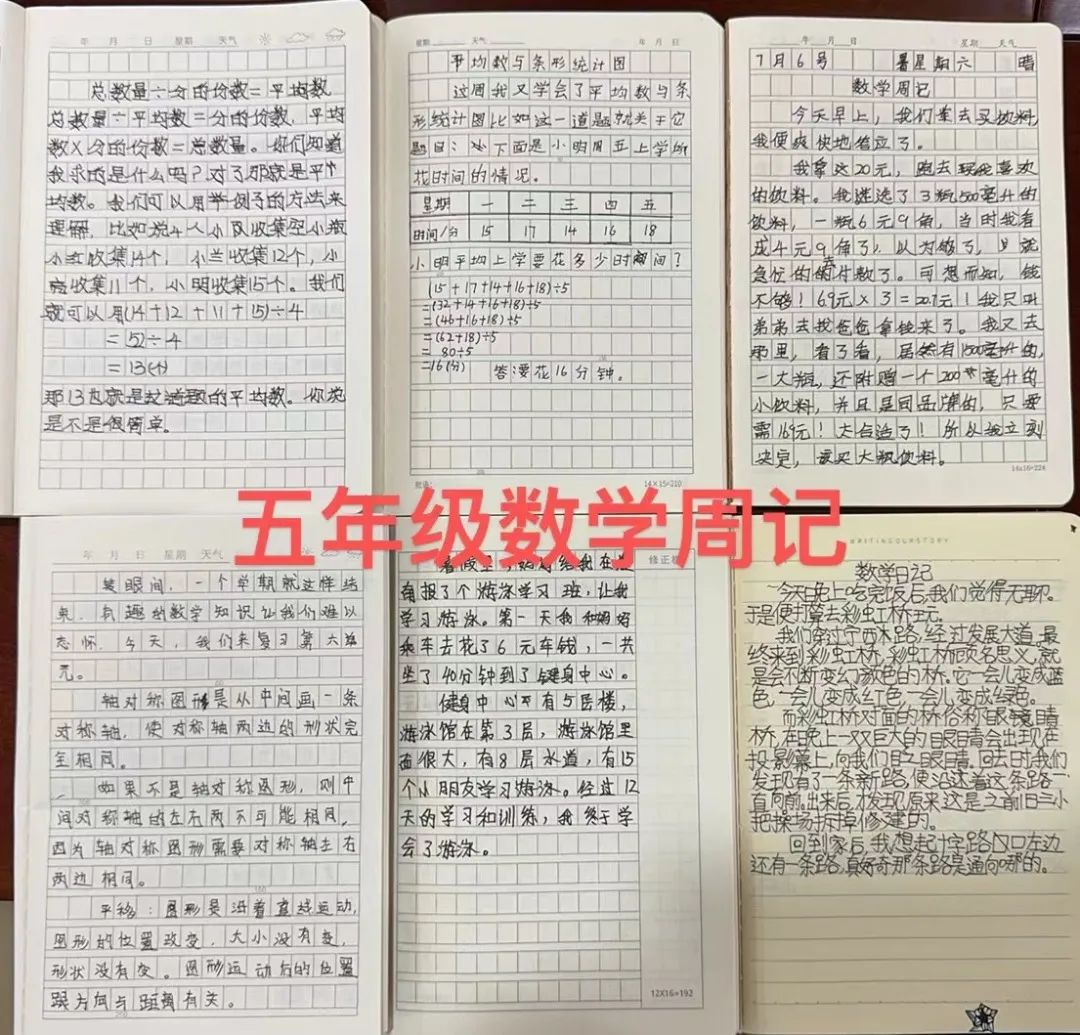 年 月 日 星期 天气
总数量÷分的份数=平均数
总数量÷平均数=分的份数,平均
数×分的份数=总数量。你们知道
我求的是什么吗?对了那就是平
均数。我们可以用举例子的方法来
理解,比如说4人小队收集空小瓶
小红收集14个,小兰收集12个,小
亮收集11个,小明收集15个。我们
就可以用(14+12+11+15)÷4
=52÷4
=13(个)
那13也就是这道题的平均数。你说
是不是很简单。
星期 天气 年 月 日
平均数与条形统计图
这周我又学会了平均数与条
形统计图比如这一道题就关于它
题目:下面是小明周五上学所
花时间的情况。
星期 一 二 三 四 五
时间/分 15 17 14 16 18
小明平均上学要花多少时间?
(15+17+14+16+18)÷5
=(32+14+16+18)÷5
=(46+16+18)÷5
=(62+18)÷5
=80÷5
=16(分) 答:要花16分钟。
14×15=210
年 月 日 星期 天气
7月6号 星期六 晴
数学周记
今天早上,我们要去买饮料
我便爽快地答应了。
我拿这20元,跑去找我喜欢
的饮料。我挑选了3瓶500毫升的
饮料,一瓶6元9角,当时我看
成4元9角了,以为够了,
急忙的去付款了。可想而知,钱
不够!6.9元×3=20.7元!我只叫
弟弟去找爸爸拿钱来了。我又去
那里,看了看,居然有1500毫升的,
一大瓶,还附赠一个200毫升的
小饮料,并且是同品牌的,只要
需16元!太合适了!所以我立刻
决定,要买大瓶饮料。
14x16=224
五年级数学周记
年 月 日 星期 天气
转眼间,一个学期就这样结
束,有趣的数学知识让我们难以
忘怀,今天,我们来复习第六单
元。
轴对称图形是从中间画一条
对称轴,使对称轴两边的形状完
全相同。
如果不是轴对称图形,则中
间对称轴的左右两不可能相同,
因为轴对称图形需要对称轴左右
两边相同。
平移:图形是沿着直线运动,
图形的位置改变,大小没有变,
形状没有变。图形运动后的位置
跟方向与距离有关。
修正栏
暑假里,妈妈给我在
有报了个游泳学习班,让我
学习游泳。第一天我和妈妈
乘车去花了6元车钱,一共
坐了40分钟到了健身中心。
健身中心有5层楼,
游泳馆在第3层,游泳馆里
面很大,有8层水道,有15
个小朋友学习游泳。经过12
天的学习和训练,我终于学
会了游泳。
12X16=192
WRITINGOURSTORY
数学日记
今天晚上吃完饭后,我们觉得无聊。
于是便打算去彩虹桥玩。
我们穿过宁西木路,经过发展大道,最
终来到彩虹桥,彩虹桥顾名思义,就
是会不断变幻颜色的桥。它一会儿变成蓝
色,一会儿变成红色,一会儿变成绿色。
而彩虹桥对面的桥俗称眼镜睛
桥,在晚上一双巨大的眼睛会出现在
投影幕上,向我们眨眼睛。回去时,我们
发现有了一条新路,便沿这着这条路一
直向前。出来后,才发现原来这是之前旧三小
把操场拆掉修建的。
回到家后,我想起十字路口左边
还有一条路,真好奇那条路是通向哪的。